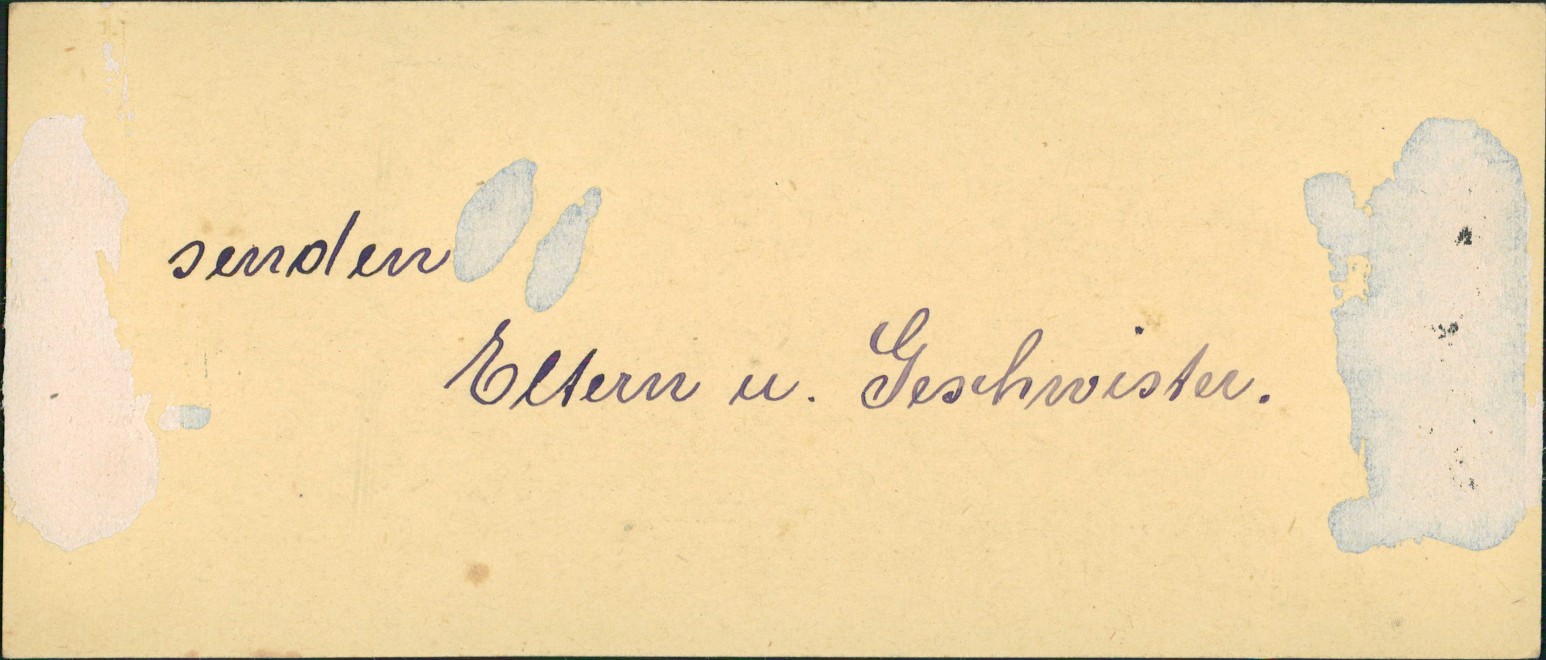 senden
Eltern u. Geschwister.